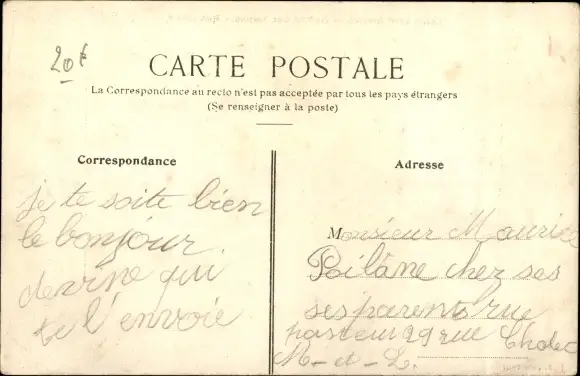 20f
CARTE POSTALE
La Correspondance au recto n'est pas acceptée par tous les pays étrangers
(Se renseigner à la poste)
Correspondance
Adresse
je te soite bien
le bonjour
devine qui
te l'envoie
Monsieur Maurice
Poilâne chez ses
ses parents rue
pasteur 29 rue Cholet
M-et-L.